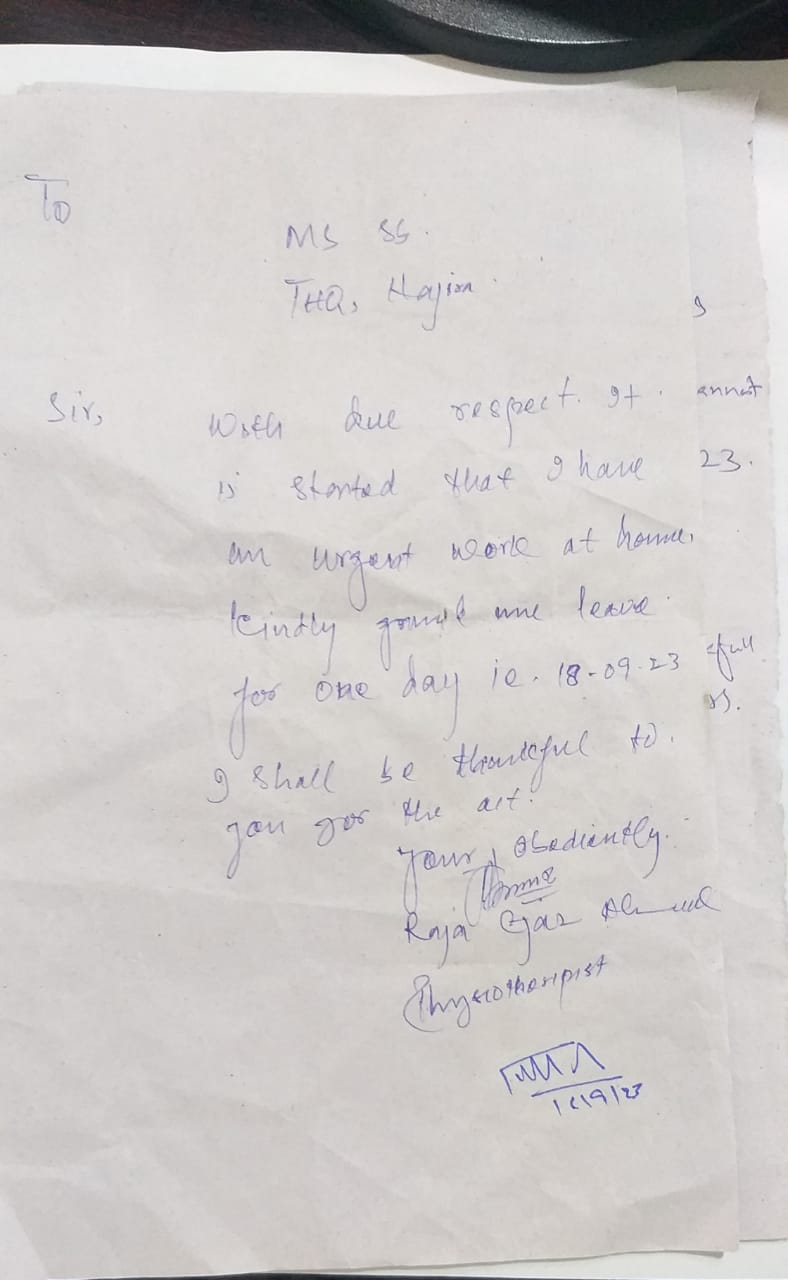 To
MS SS.
THQ, Hajira.
Sir,
With due respect. It
is started that I have
an urgent work at home.
Kindly me leave
for one day ie. 18-09-23
I shall be thankful to.
you for the act.
Your, Obediently.
Raja Ejaz Ahmed
Physiotheripist
annot
23.